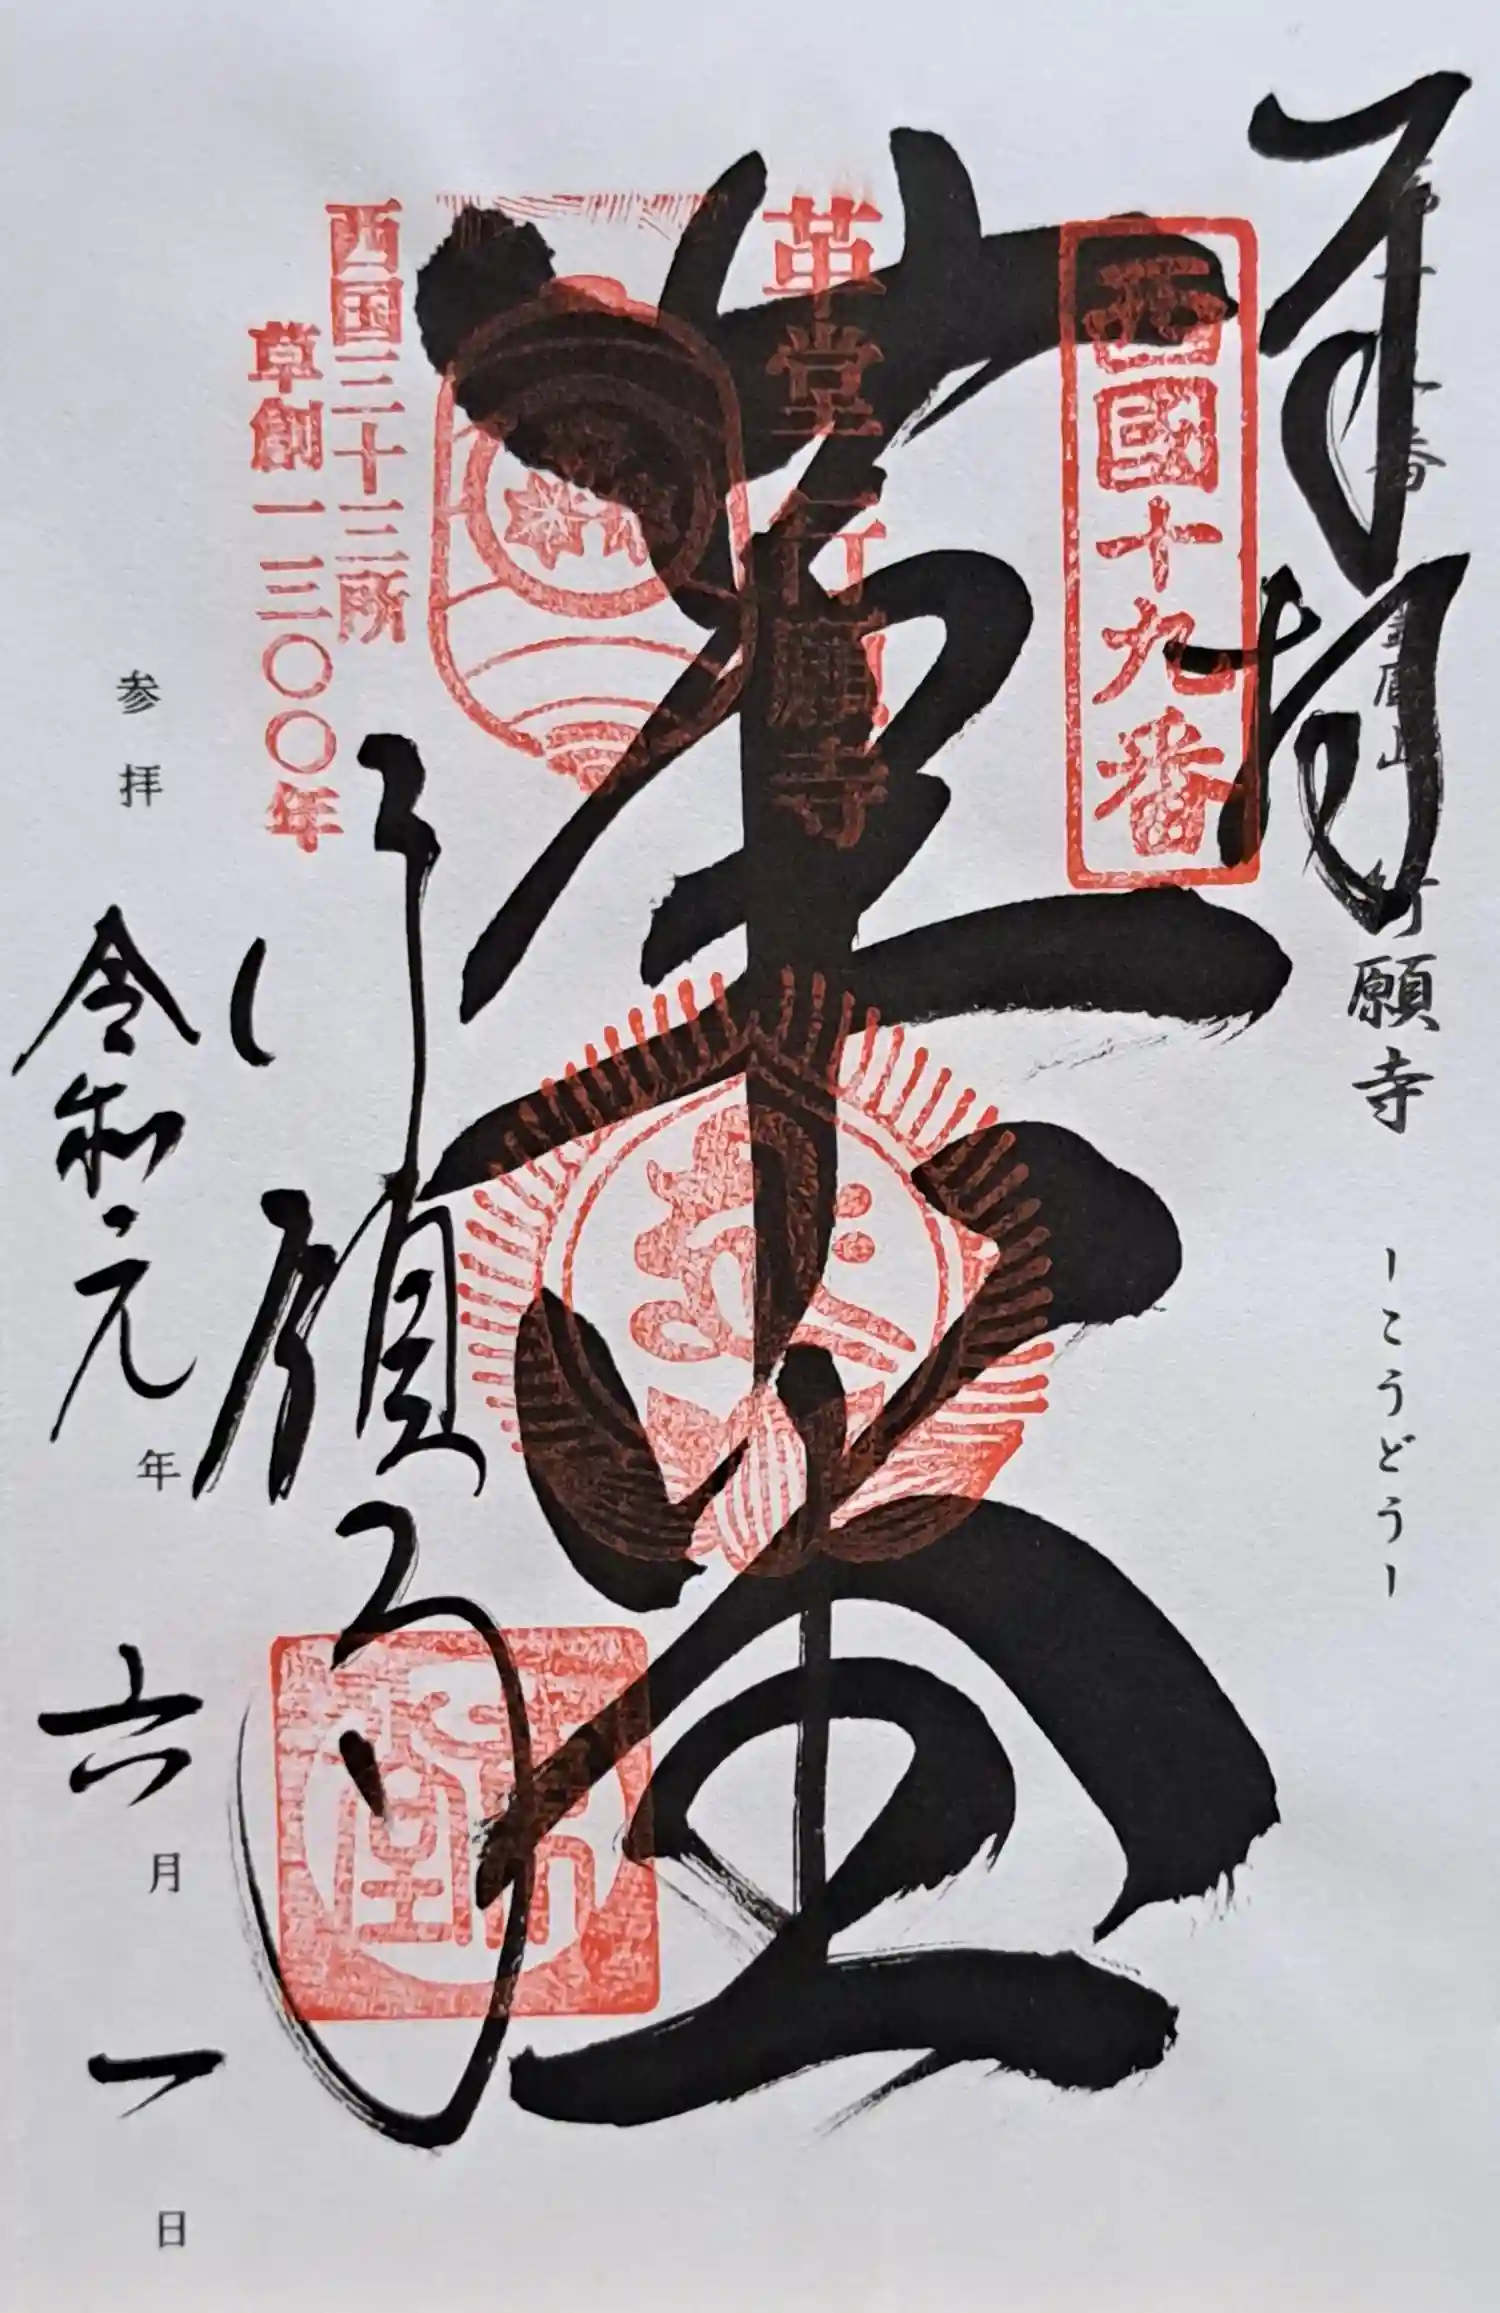 奉拝
第十九番
行願寺
ーこうどうー
西國十九番
革堂
革堂行願寺
西国三十三所
草創一三〇〇年
行願寺
参拝 令和元年六月一日